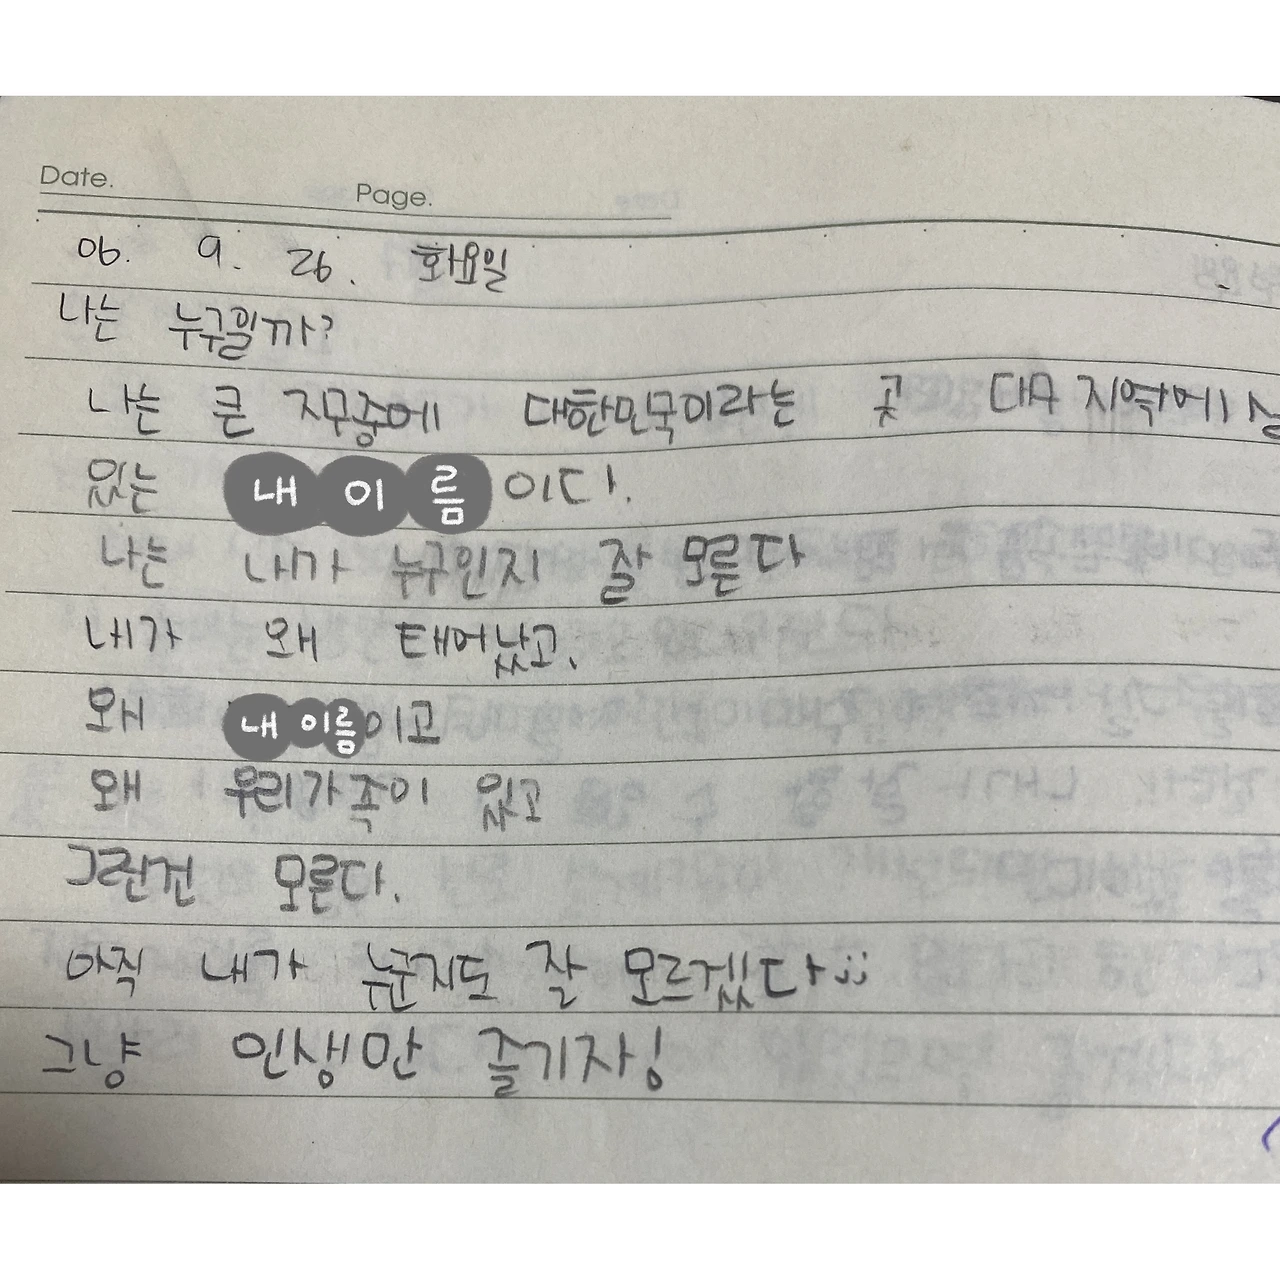 Date.
Page.
06. 9. 26. 화요일
나는 누구일까?
나는 큰 지구중에 대한민국이라는 곳 대구 지역에
있는 내 이 름 이다.
나는 내가 누구인지 잘 모른다
내가 왜 태어났고,
왜 내 이름이고
왜 우리가족이 있고
그런건 모른다.
아직 내가 누군지도 잘 모르겠다
그냥 인생만 즐기자!